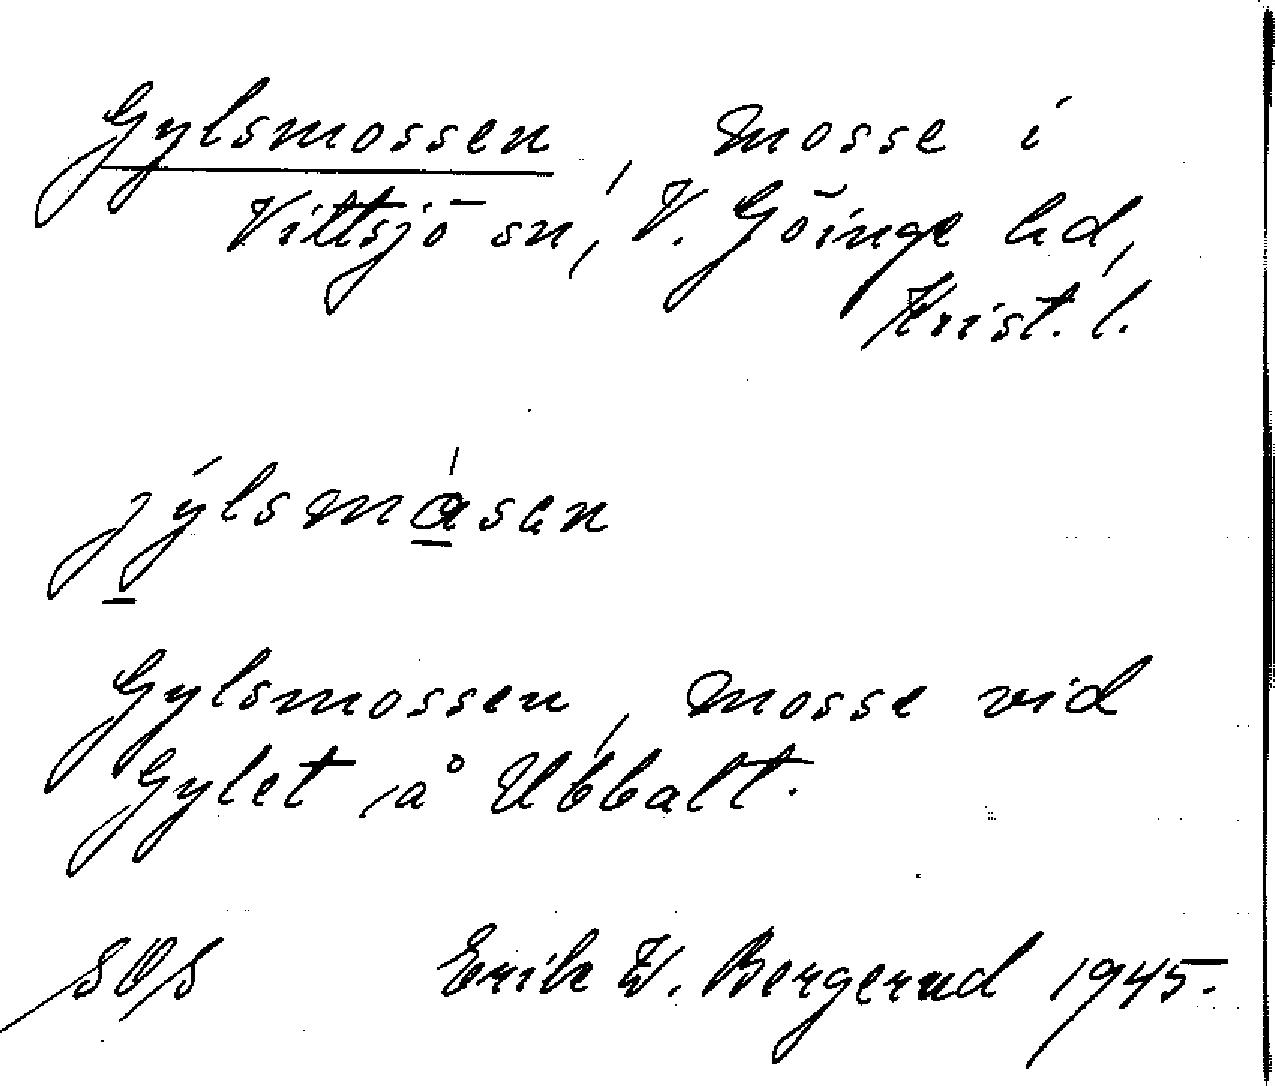 Gylsmossen, mosse i
Vittsjö sn, V. Göinge hd,
Krist. l.
jýlsmásen
Gylsmossen, mosse vid
Gylet, å Ubbalt.
Erik W. Bergerud 1945.